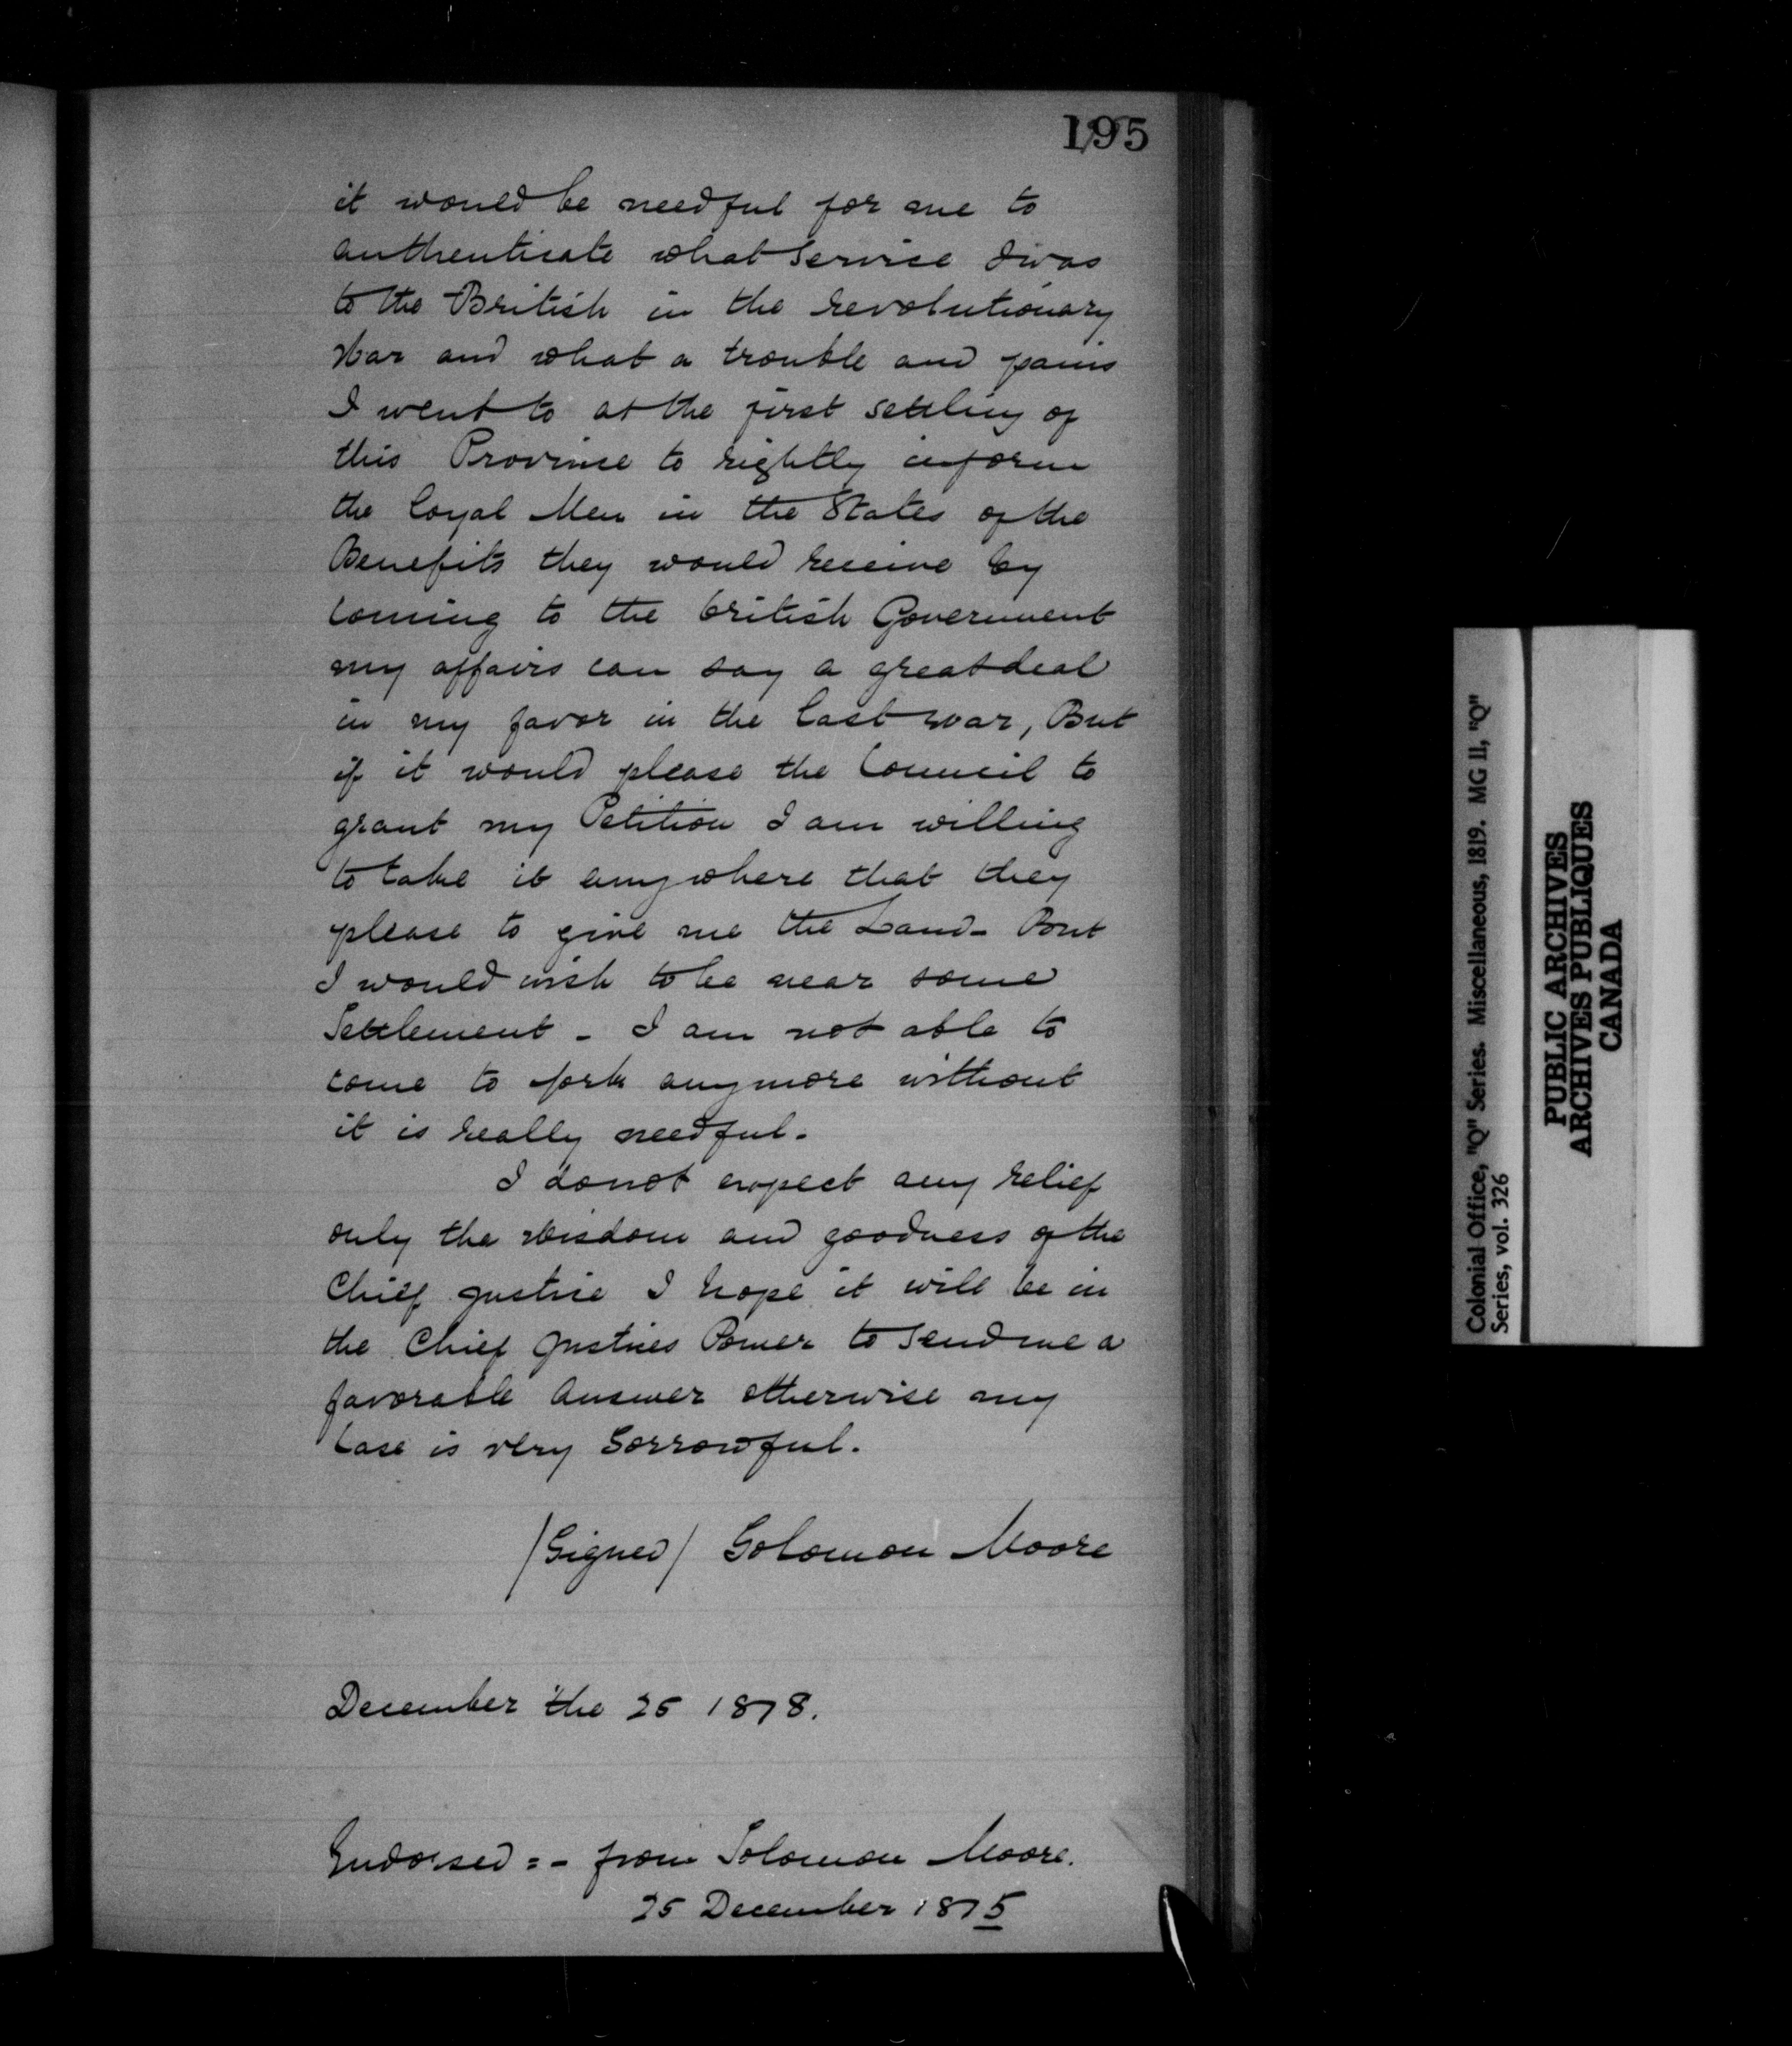 195
it would be needful for me to
authenticate what service I was
to the British in the revolutionary
War and what a trouble and pains
I went to at the first settling of
this Province to rightly inform
the loyal Men in the States of the
Benefits they would receive by
coming to the british Government
my affairs can say a great deal
in my favor in the last war, But
if it would please the Council to
grant my Petition I am willing
to take it anywhere that they
please to give me the Land - But
I would wish to be near some
Settlement - I am not able to
come to York anymore without
it is really needful.
I do not expect any relief
only the wisdom and goodness of the
Chief Justice I hope it will be in
the Chief Justices Power to send me a
favorable answer otherwise my
Case is very Sorrowful.
/Signed/ Solomon Moore
December the 25 1878.
Endorsed :- from Solomon Moore.
25 December 1875
Colonial Office, "Q" Series. Miscellaneous, 1819. MG 11, "Q"
Series, vol. 326
PUBLIC ARCHIVES
ARCHIVES PUBLIQUES
CANADA